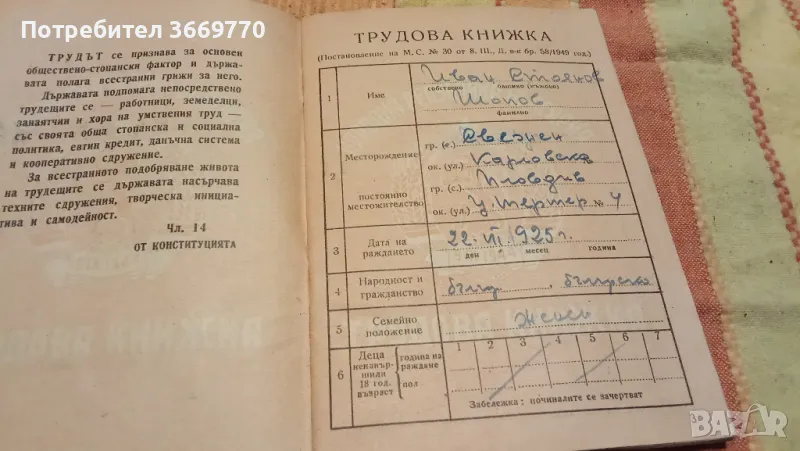 Потребител 3669770
ТРУДЪТ се признава за основен
обществено-стопански фактор и държа-
вата полага всестранни грижи за него.
Държавата подпомага непосредствено
трудещите се — работници, земеделци,
занаятчии и хора на умствения труд —
със своята обща стопанска и социална
политика, евтин кредит, данъчна система
и кооперативно сдружение.
За всестранното подобряване живота
на трудещите се държавата насърчава
техните сдружения, творческа инициа-
тива и самодейност.
Чл. 14
ОТ КОНСТИТУЦИЯТА
ТРУДОВА КНИЖКА
(Постановление на М. С. № 30 от 8. III., Д. в-к бр. 58/1949 год.)
1 Име Иван Стоянов
собствено бащино (мъжово)
Шопов
фамилно
2 Месторождение гр. (с.) Свежен
ок. (ул.) Карловска
постоянно местожителство гр. (с.) Пловдив
ок. (ул.) № 4
3 Дата на раждането 22. VII. 1925 г.
ден месец година
4 Народност и гражданство бълг., българско
5 Семейно положение Женен
6 Деца ненавършили 18 год. възраст година на раждане пол 1 2 3 4 5 6 7
Забележка: починалите се зачертват
3
BAZAR